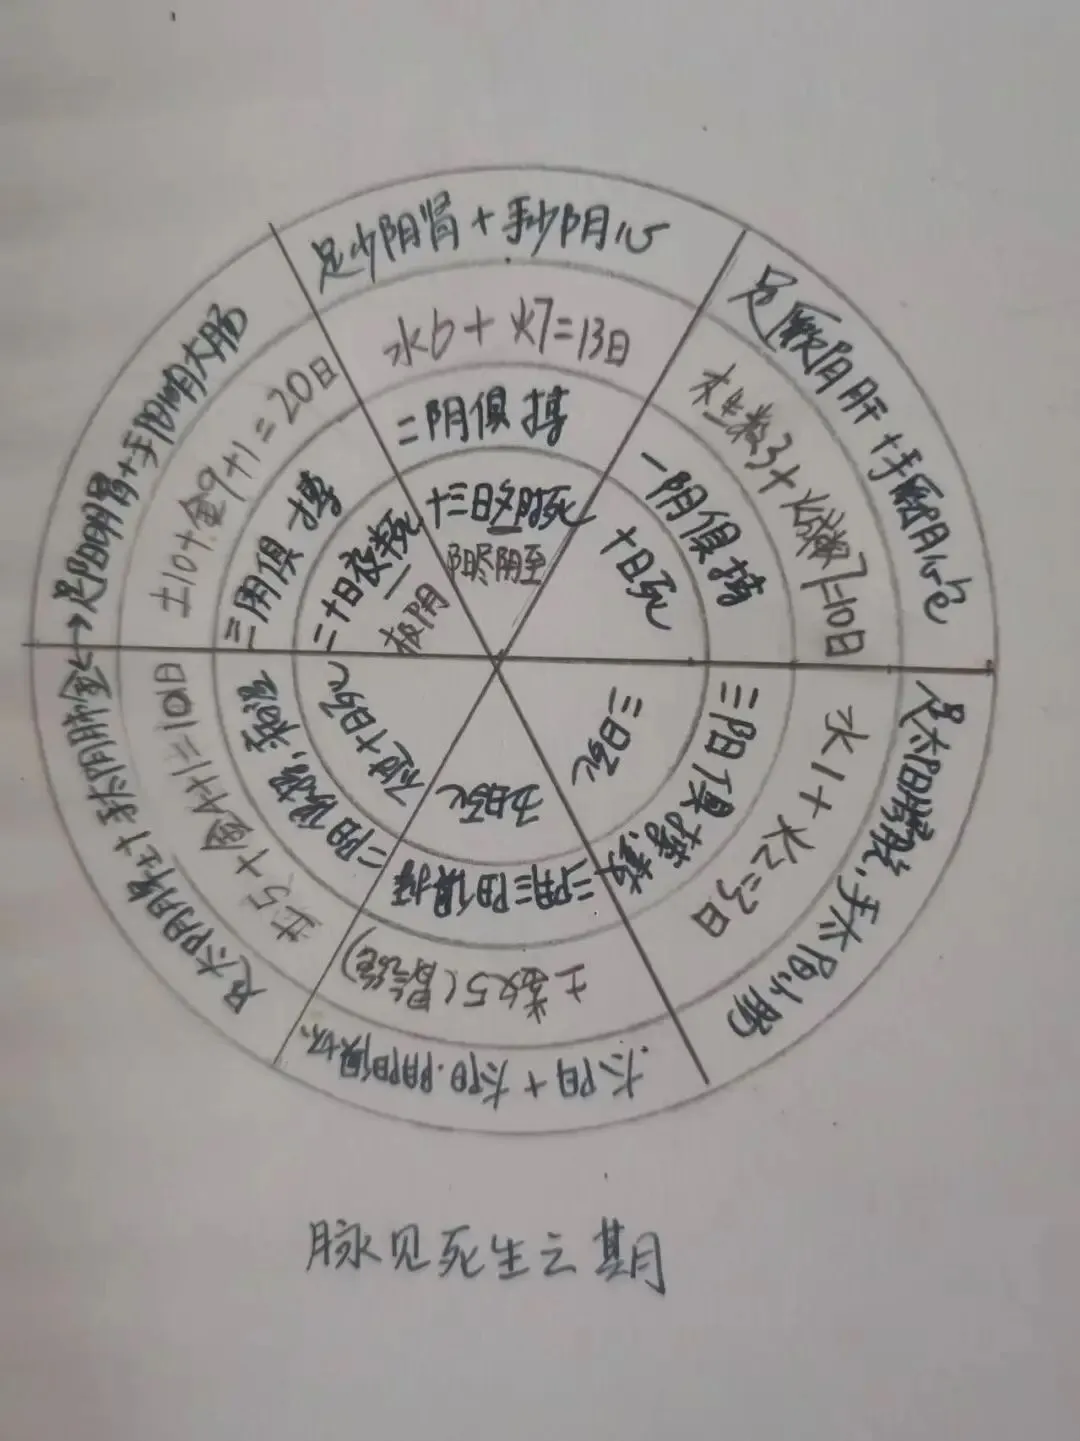 足少阴肾+手少阴心
水6+火7=13日
二阴俱搏
十三日夕时死
阳尽阴至
足厥阴肝+手厥阴心包
木生数3+火成数7=10日
一阴俱搏
十日死
足太阳膀胱、手太阳小肠
水1+火2=3日
三阳俱搏
三日死
土数5
三阴三阳俱搏
五日死
土5+金4+1=10日
不过十日死
足阳明胃+手阳明大肠
土10+金9+1=20日
三阴俱搏
二十日夜半死
极阴
脉见死生之期